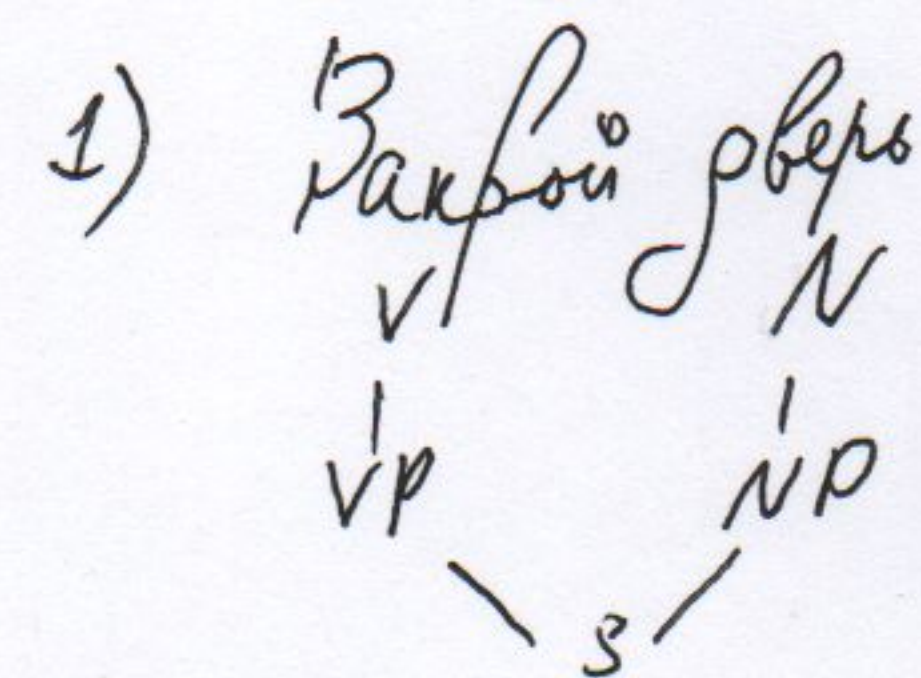 1) Закрой дверь
V N
VP NP
S